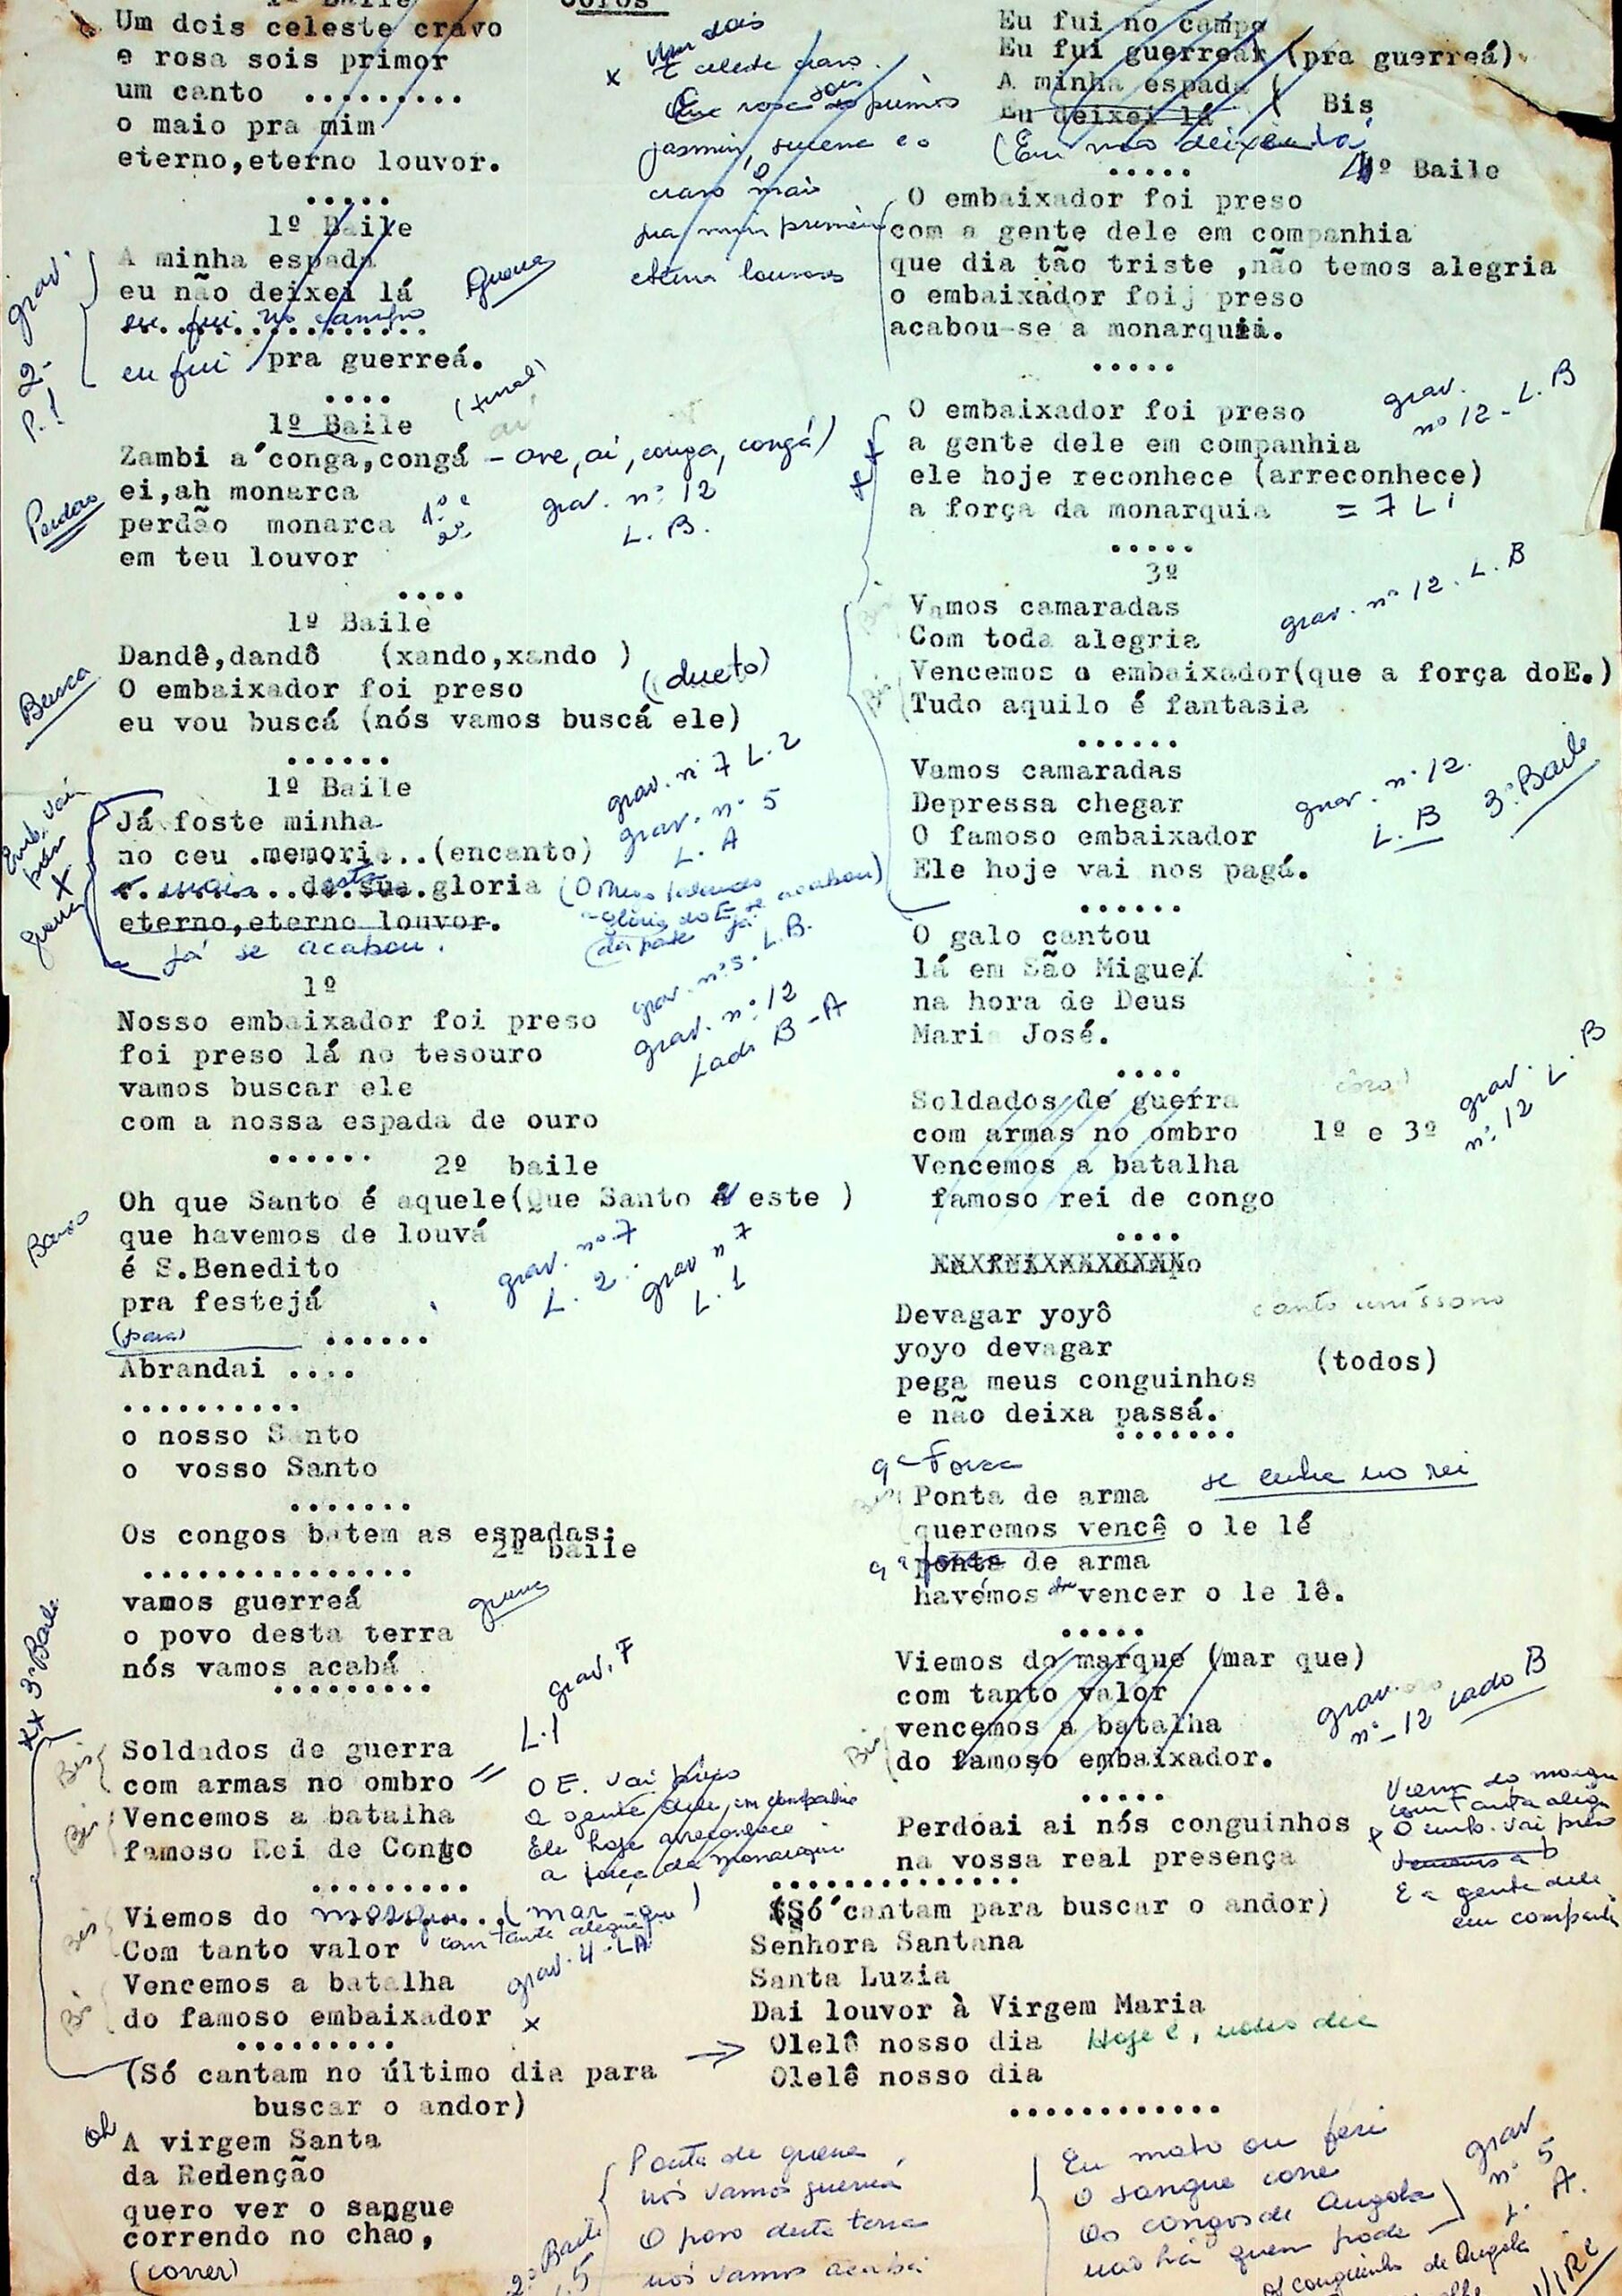 1º Baile
Coros
Um dois celeste cravo
e rosa sois primor
um canto .........
o maio pra mim
eterno,eterno louvor.
.....
1º Baile
A minha espada
eu não deixei lá
eu fui no campo
eu fui pra guerreá.
Guerra
grav.
2-
P.1
....
1º Baile
(final)
Zambi a conga,congá - ave, ai, conga, congá)
ei,ah monarca
perdão monarca 1º e 2º
em teu louvor
Perdão
grav. nº 12
L. B.
....
1º Baile
Dandê,dandô (xando,xando )
(dueto)
O embaixador foi preso
eu vou buscá (nós vamos buscá ele)
Busca
......
1º Baile
Já foste minha
no ceu .memoria...(encanto)
de sua.gloria
eterno,eterno louvor.
já se acabou.
Emb. vai
guerra
grav. nº 7 L. 2
grav. nº 5
L. A
grav. nº 5. L.B.
1º
Nosso embaixador foi preso
foi preso lá no tesouro
vamos buscar ele
com a nossa espada de ouro
grav. nº 12
Lado B - A
......
2º baile
Oh que Santo é aquele(Que Santo é este )
que havemos de louvá
é S.Benedito
pra festejá
(para)
grav. nº 7
L. 2.
grav nº 7
L. 1
......
Abrandai ....
..........
o nosso Santo
o vosso Santo
.......
Os congos batem as espadas.
2º baile
...............
vamos guerreá
o povo desta terra
nós vamos acabá
guerra
.........
xx 3º Baile
grav. 7
L.1
Bis
Soldados de guerra
com armas no ombro =
Bis
Vencemos a batalha
famoso Rei de Congo
O E. vai preso
a gente dele, em companhia
Ele hoje arreconhece
a força da monarquia
.........
Bis
Viemos do marque...(mar-que)
Com tanto valor
com tanta alegria
Bis
Vencemos a batalha
do famoso embaixador x
grav. 4 - LA
.........
(Só cantam no último dia para
buscar o andor)
Oh
A virgem Santa
da Redenção
quero ver o sangue
correndo no chão,
(correr)
x Um dois
É celeste cravo.
Que rosa sois primor
jasmin, sucena e o
cravo o mais
pra mim
eterno louvores
Eu fui no campo
Eu fui guerrear (pra guerreá)
A minha espada
Eu deixei lá
Bis
(Eu não deixei lá
.....
1º Baile
O embaixador foi preso
com a gente dele em companhia
que dia tão triste ,não temos alegria
o embaixador foij preso
acabou-se a monarquia.
.....
O embaixador foi preso
a gente dele em companhia
ele hoje reconhece (arreconhece)
a força da monarquia = 7 L i
grav.
nº 12 - L. B
.....
3º
Vamos camaradas
Com toda alegria
Vencemos o embaixador(que a força doE.)
Tudo aquilo é fantasia
Bis
Bis
grav. nº 12. L. B
......
Vamos camaradas
Depressa chegar
O famoso embaixador
Ele hoje vai nos pagá.
grav. nº 12.
L. B
3º Baile
......
O galo cantou
lá em São Miguel
na hora de Deus
Maria José.
....
Soldados de guerra
com armas no ombro
Vencemos a batalha
famoso rei de congo
1º e 3º
grav.
nº 12 L. B
....
Devagar yoyô
yoyo devagar
pega meus conguinhos
e não deixa passá.
canto uníssono
(todos)
.......
Ponta de arma
queremos vencê o le lê
ponta de arma
havemos de vencer o le lê.
.....
Viemos do marque (mar que)
com tanto valor
vencemos a batalha
do famoso embaixador.
Bis
grav.
nº - 12 Lado B
.....
Perdoai ai nós conguinhos
na vossa real presença
com tanta alegr
O emb. vai preso
E a gente dele
em companhi
..............
(Só cantam para buscar o andor)
Senhora Santana
Santa Luzia
Dai louvor à Virgem Maria
Olelô nosso dia
Hoje é, nosso dia
Olelê nosso dia
............
Ponta de guerra
nós vamos guerreá
O povo desta terra
nós vamos acabá
2º Baile
Eu mato ou firo
O sangue corre
Os congos de Angola
não há quem pode
grav
nº 5
L. A.
Os conguinhos de Angola
VIRE